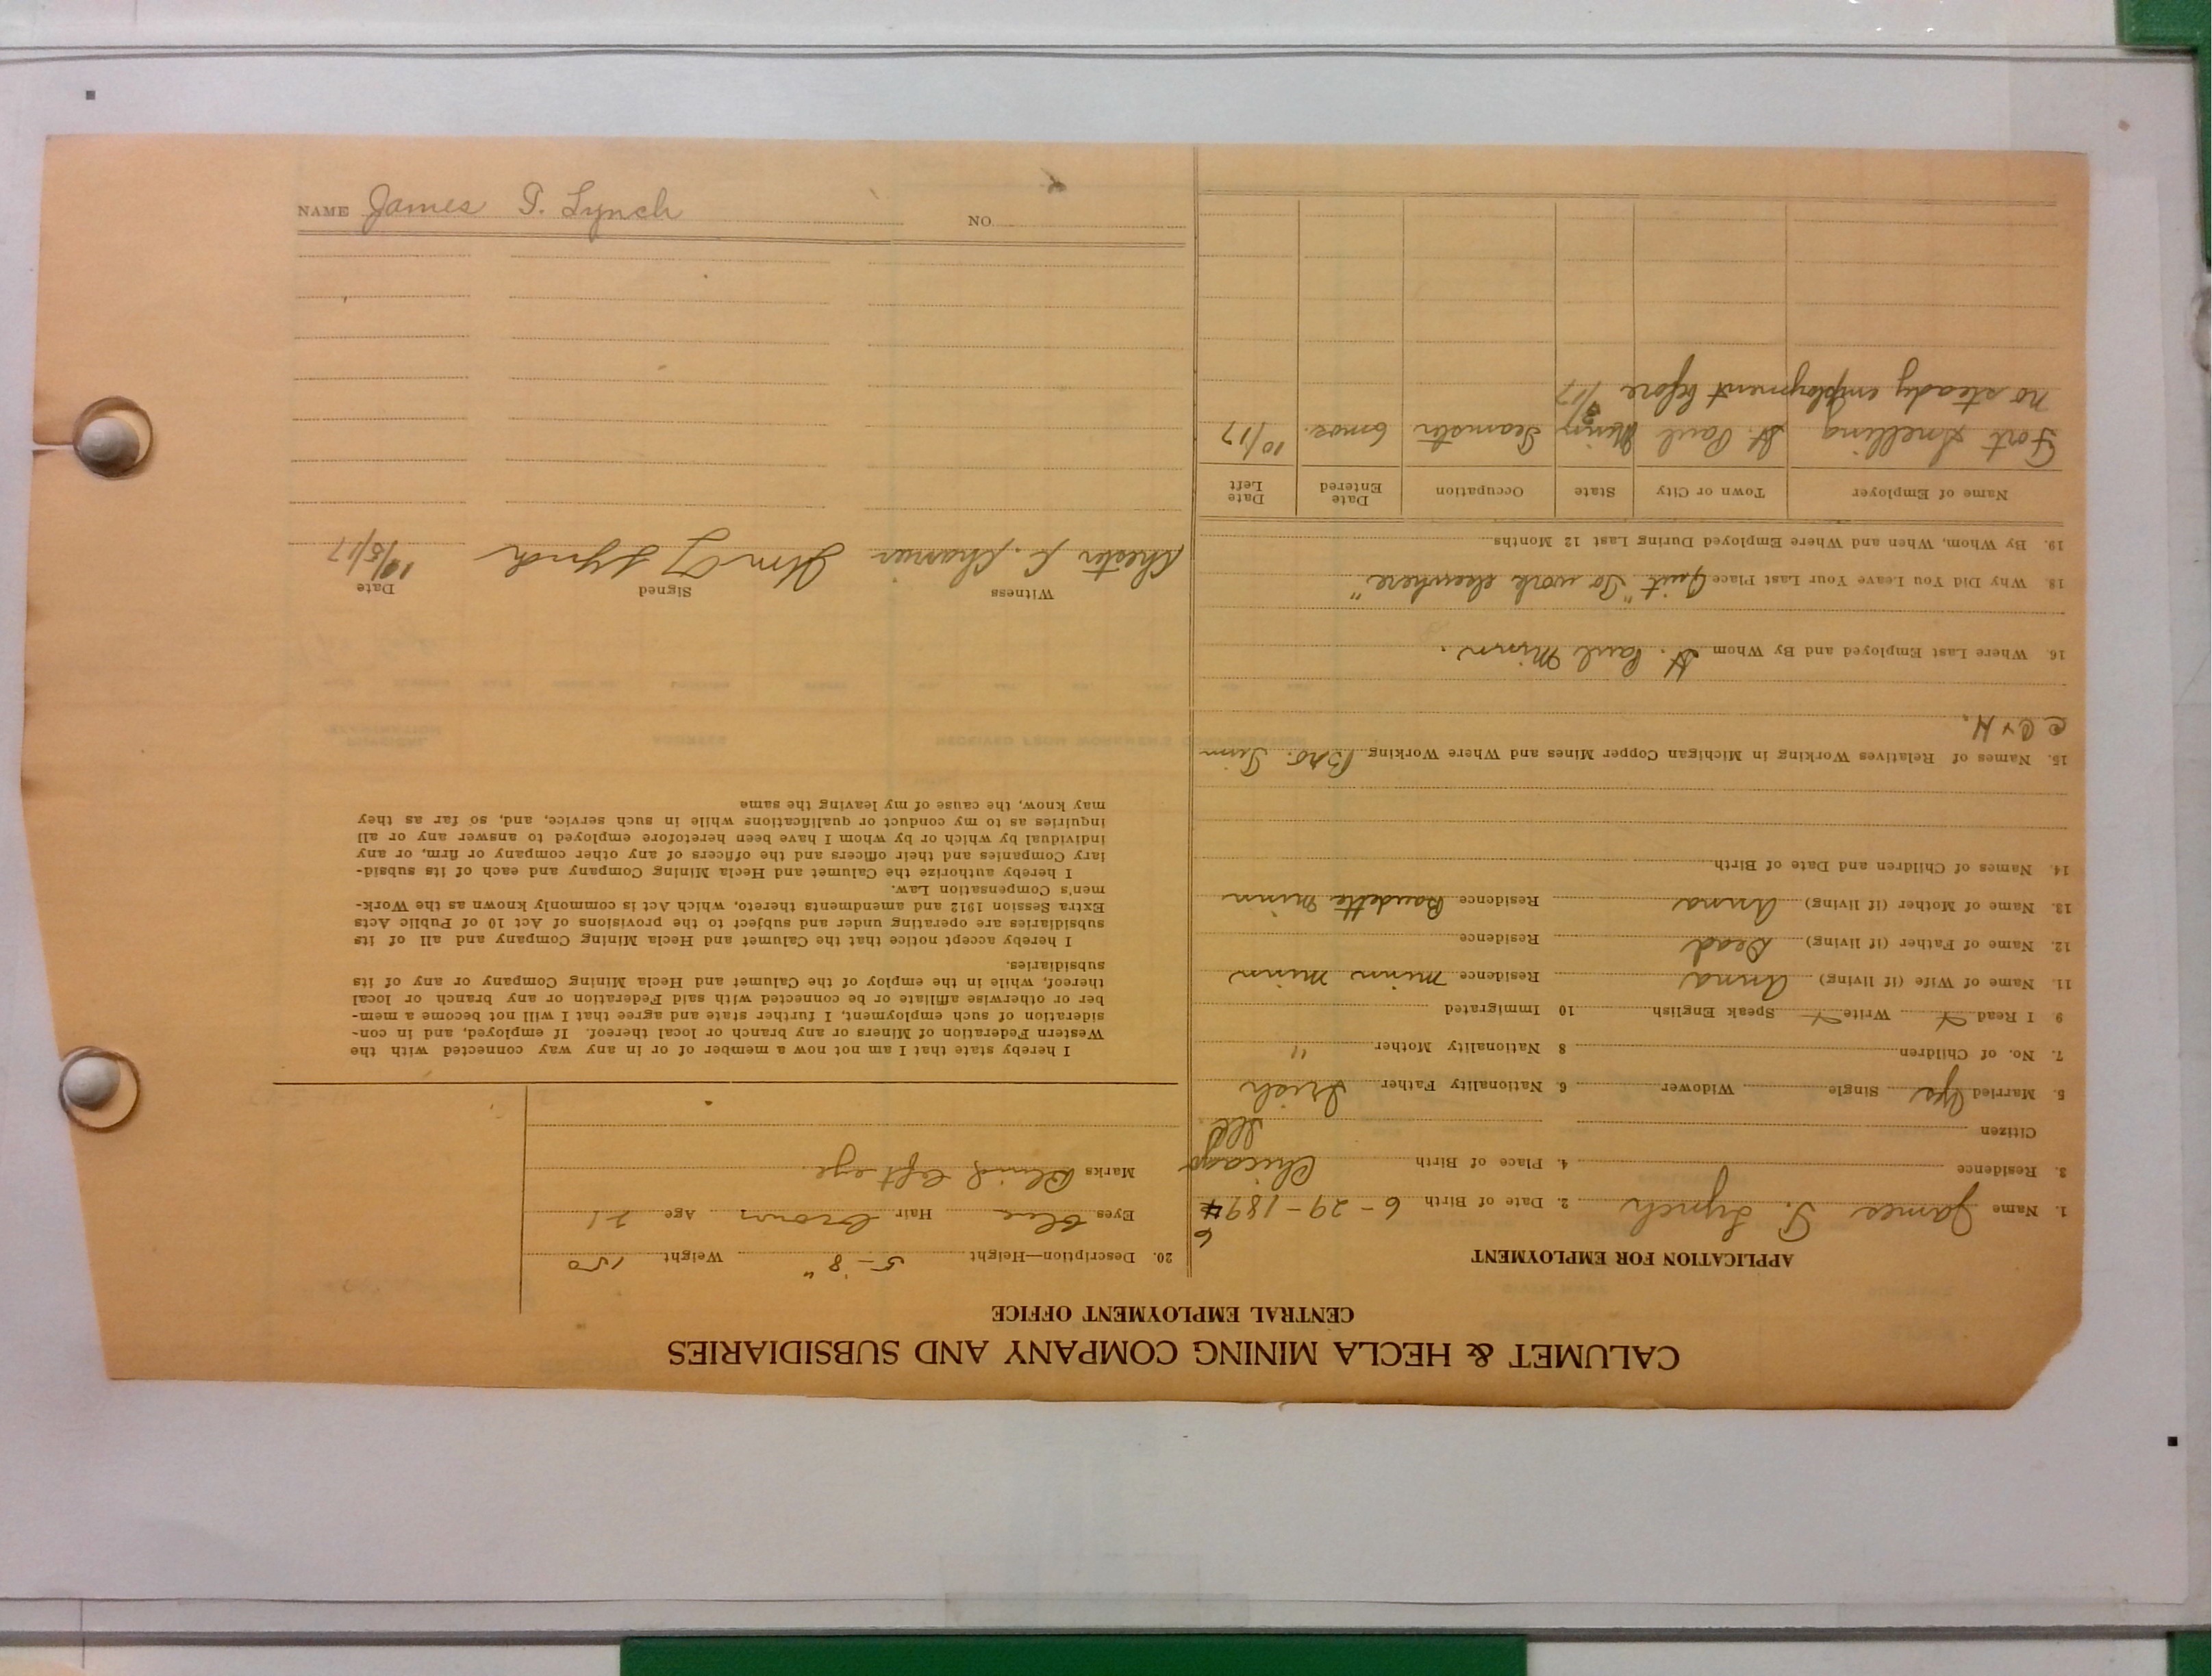 CALUMET & HECLA MINING COMPANY AND SUBSIDIARIES
CENTRAL EMPLOYMENT OFFICE
APPLICATION FOR EMPLOYMENT
1. Name James T. Lynch 2. Date of Birth 6-29-1894 6
3. Residence 4. Place of Birth Chicago
Citizen Ill
5. Married Yes Single Widower 6. Nationality Father Irish
7. No. of Children 8 Nationality Mother "
9 I Read Write Speak English 10 Immigrated
11. Name of Wife (if living) Anna Residence Minn Minn
12. Name of Father (if living) Dead Residence
13. Name of Mother (if living) Anna Residence Baudette Minn
14. Names of Children and Date of Birth
15. Names of Relatives Working in Michigan Copper Mines and Where Working Bro. Tim
C & H.
16. Where Last Employed and By Whom St. Paul Minn.
18. Why Did You Leave Your Last Place Quit "To work elsewhere"
19. By Whom, When and Where Employed During Last 12 Months
Name of Employer Town or City State Occupation Date Entered Date Left
Fort Snelling St. Paul Minn Teamster 6 mos. 10/17
no steady employment before 3/17
20. Description—Height 5-8" Weight 150
Eyes blue Hair brown Age 21
Marks Blind left eye
I hereby state that I am not now a member of or in any way connected with the
Western Federation of Miners or any branch or local thereof. If employed, and in con-
sideration of such employment, I further state and agree that I will not become a mem-
ber or otherwise affiliate or be connected with said Federation or any branch or local
thereof, while in the employ of the Calumet and Hecla Mining Company or any of its
subsidiaries.
I hereby accept notice that the Calumet and Hecla Mining Company and all of its
subsidiaries are operating under and subject to the provisions of Act 10 of Public Acts
Extra Session 1912 and amendments thereto, which Act is commonly known as the Work-
men's Compensation Law.
I hereby authorize the Calumet and Hecla Mining Company and each of its subsid-
iary Companies and their officers and the officers of any other company or firm, or any
individual by which or by whom I have been heretofore employed to answer any or all
inquiries as to my conduct or qualifications while in such service, and, so far as they
may know, the cause of my leaving the same
Witness Signed Date
Chester Lynch 10/5/17
NAME James T. Lynch NO